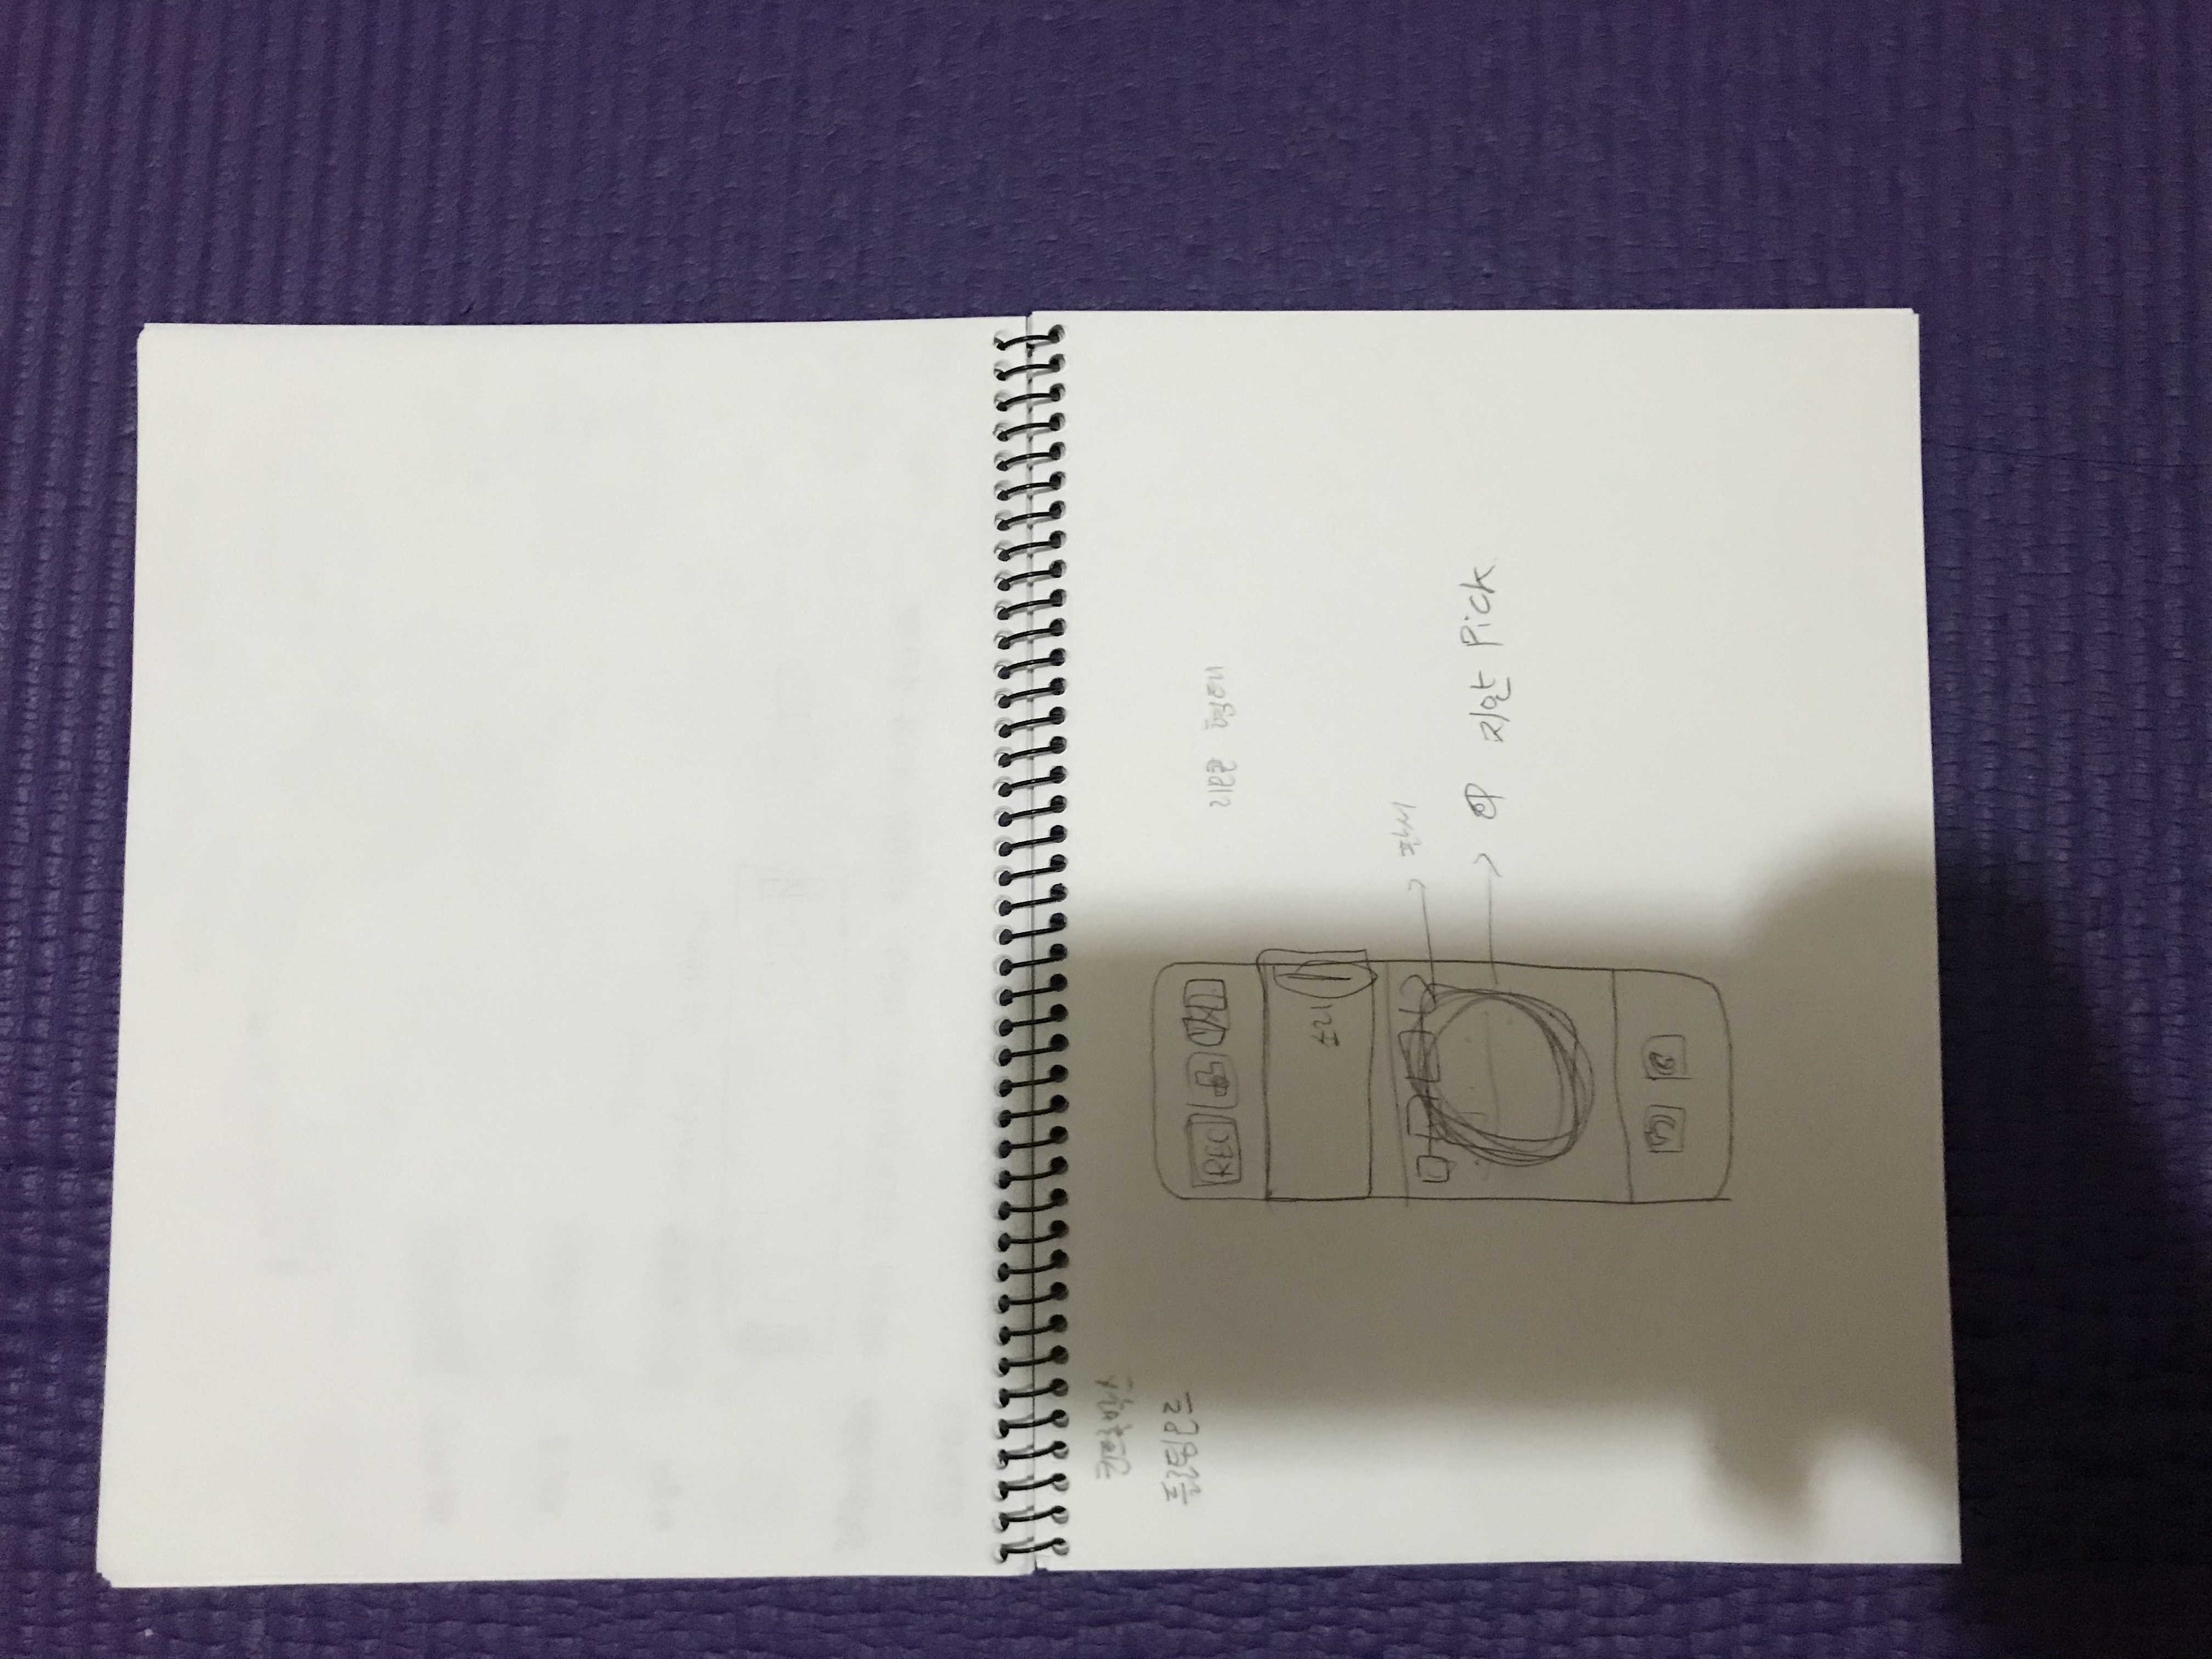 컨트롤박스
플로팅모드
REC
리모콘 형태
소리
판서
지안 Pick